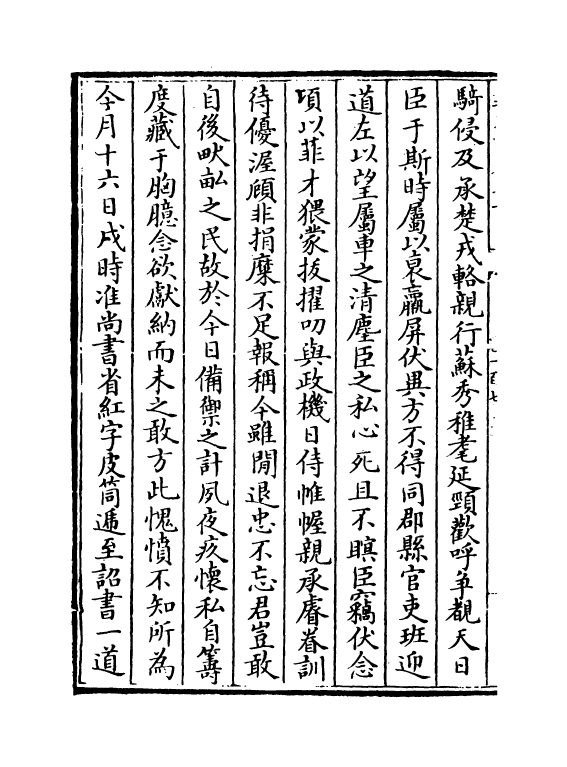 騎侵及承楚戎輅親行蘇秀稚耄延頸歡呼争覩天日
臣于斯時屬以衰羸屏伏異方不得同郡縣官吏班迎
道左以望屬車之清塵臣之私心死且不瞑臣竊伏念
頃以菲才猥蒙拔擢叨與政機日侍帷幄親承睿眷訓
待優渥顧非捐糜不足報稱今雖閒退忠不忘君豈敢
自後畎畆之民故於今日備禦之計夙夜疚懷私自籌
度藏于胸臆念欲獻納而未之敢方此愧憤不知所為
今月十六日戌時准尚書省紅字皮筒遞至詔書一道